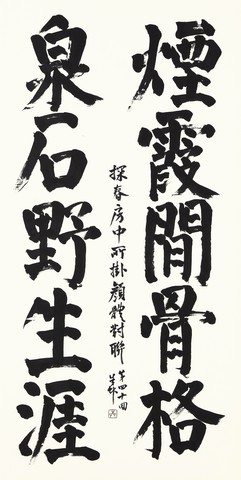 煙霞閒骨格
泉石野生涯
探春房中所掛顏體對聯
第四十回